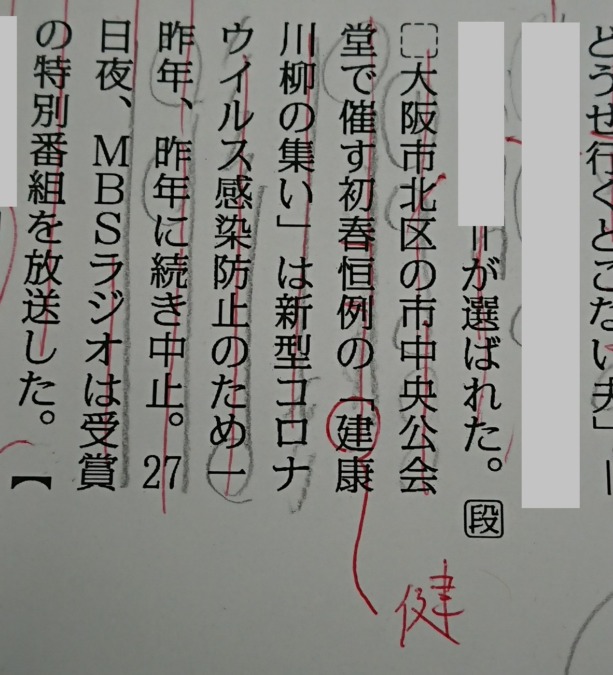 どうせ行くとこない夫」＝
＝が選ばれた。段
大阪市北区の市中央公会
堂で催す初春恒例の「建康
川柳の集い」は新型コロナ
ウイルス感染防止のため一
昨年、昨年に続き中止。27
日夜、MBSラジオは受賞
の特別番組を放送した。【
健